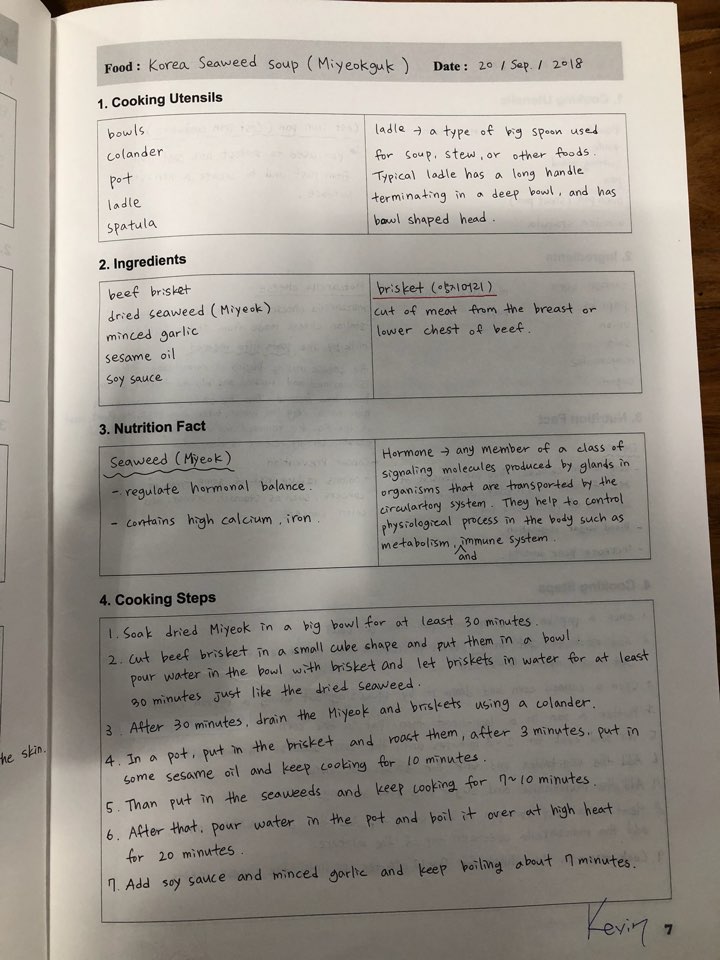 Food : Korea Seaweed soup (Miyeokguk) Date : 20 / Sep. / 2018
1. Cooking Utensils
bowls
colander
pot
ladle
spatula
ladle → a type of big spoon used
for soup, stew, or other foods.
Typical ladle has a long handle
terminating in a deep bowl, and has
bowl shaped head.
2. Ingredients
beef brisket
dried seaweed (Miyeok)
minced garlic
sesame oil
soy sauce
brisket (양지머리)
cut of meat from the breast or
lower chest of beef.
3. Nutrition Fact
Seaweed (Miyeok)
- regulate hormonal balance.
- contains high calcium, iron.
Hormone → any member of a class of
signaling molecules produced by glands in
organisms that are transported by the
circulartory system. They help to control
physiological process in the body such as
metabolism, and immune system.
4. Cooking Steps
1. Soak dried Miyeok in a big bowl for at least 30 minutes.
2. Cut beef brisket in a small cube shape and put them in a bowl.
pour water in the bowl with brisket and let briskets in water for at least
30 minutes just like the dried seaweed.
3. After 30 minutes, drain the Miyeok and briskets using a colander.
4. In a pot, put in the brisket and roast them, after 3 minutes, put in
some sesame oil and keep cooking for 10 minutes.
5. Than put in the seaweeds and keep cooking for 7~10 minutes.
6. After that, pour water in the pot and boil it over at high heat
for 20 minutes.
7. Add soy sauce and minced garlic and keep boiling about 7 minutes.
he skin.
Kevin
7